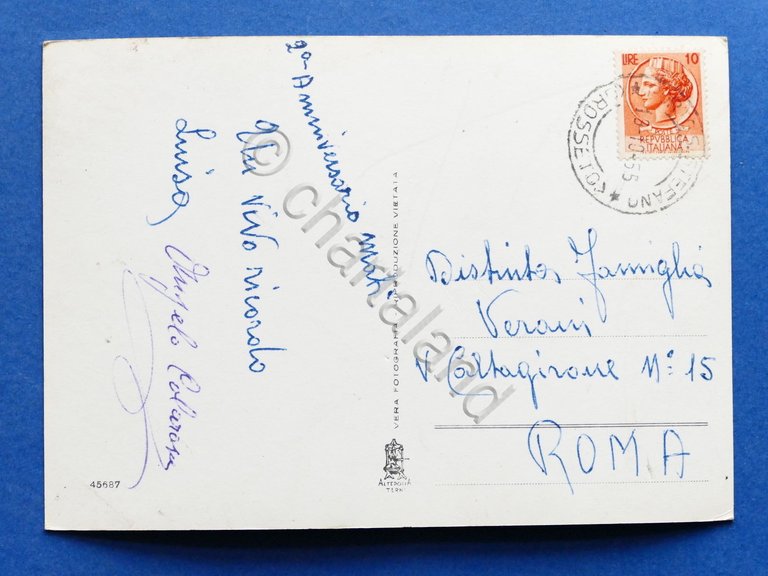 2° Anniversario matr.
Un vivo ricordo
Luisa
Angelo
45687
VERA FOTOGRAFIA - RIPRODUZIONE VIETATA
ALTEROCCA
TERNI
LIRE 10
REPVBBLICA
ITALIANA
STEFANO * (GROSSETO) *
10-55
Distinta Famiglia
Verani
V. Caltagirone N° 15
ROMA
© chartaland